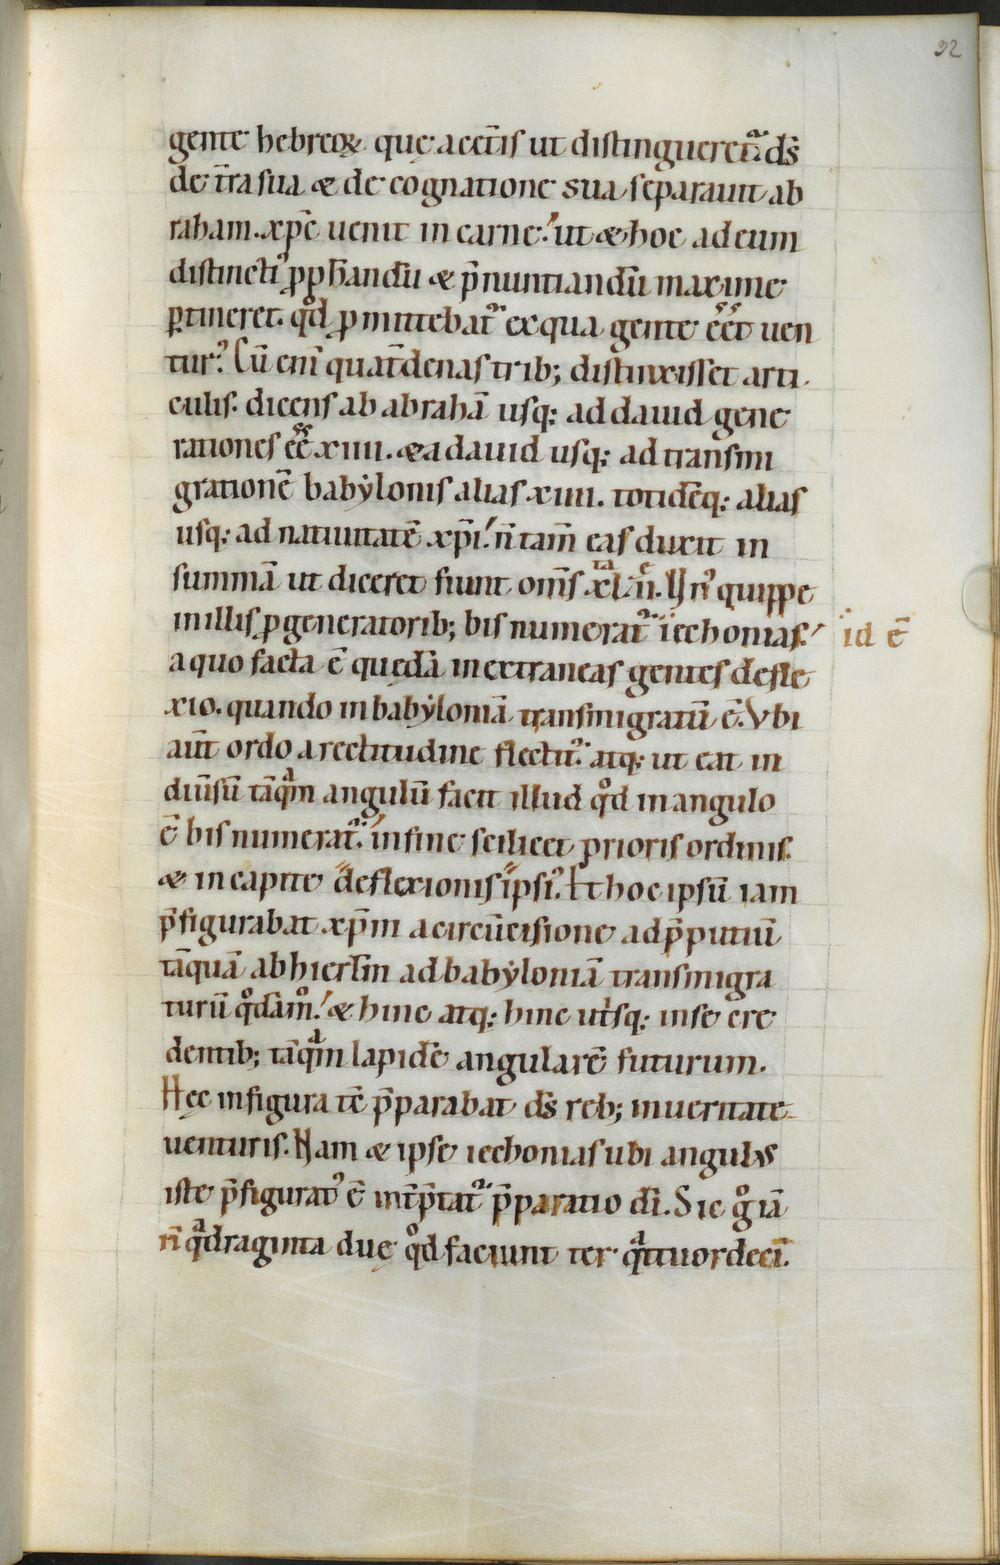 32
gente hebreoꝝ que̜ a cet̄is ut distinguerent᷑. ds̄
de t̄ra sua & de cognatione sua separauit ab
raham. xp̄c uenit in carne. ut & hoc ad eum
distincti᷒ ꝓpħandū & p̄nuntiandū maxime
ꝑtineret. qd̊ ꝓmittebat᷑ ex qua gente eēt uen
tur᷒. Cū enī quat̄denas trib; distinxisset arti
culis. dicens ab abrahā usq; ad dauid gene
rationes eē xiiii. & a dauid usq; ad transmi
grationē babẏlonis alias xiiii. totidēq; alias
usq; ad natiuitatē xp̄i. n̄ tam̄ eas duxit in
summā ut diceret fiunt oms̄ xl.ii. Un᷒ quippe
in illis ꝓgeneratorib; bis numerat᷑ iechonias. id ē
a quo facta ē que̜dā in extraneas gentes defle
xio. quando in babẏloniā transmigratū ē. Vbi
aut̄ ordo a rectitudine flectit᷑. atq; ut eat in
diūsū tāqᵃm angulū facit illud qd̊ in angulo
ē bis numerat᷑. in fine scilicet prioris ordinis.
& in capite deflexionis ipsi᷒. Et hoc ipsū iam
p̄figurabat xp̄m a circūcisione ad p̄putiū
tāquā ab hierl̄m ad babẏloniā transmigra
turū qd̊ām̊. & hinc atq; hinc utⁱsq; in se cre
dentib; tāqᵃm lapidē angularē futurum.
Hec in figura tē p̄parabat ds̄ reb; in ueritate
uenturis. Nam & ipse iechonias ubi angulus
iste p̄figurat᷒ ē int̄p̄tat᷑ p̄paratio dī. Sic g̊ iā
n̄ qᵃdraginta due̜ qd̊ faciunt ter qᵃttuordecī.